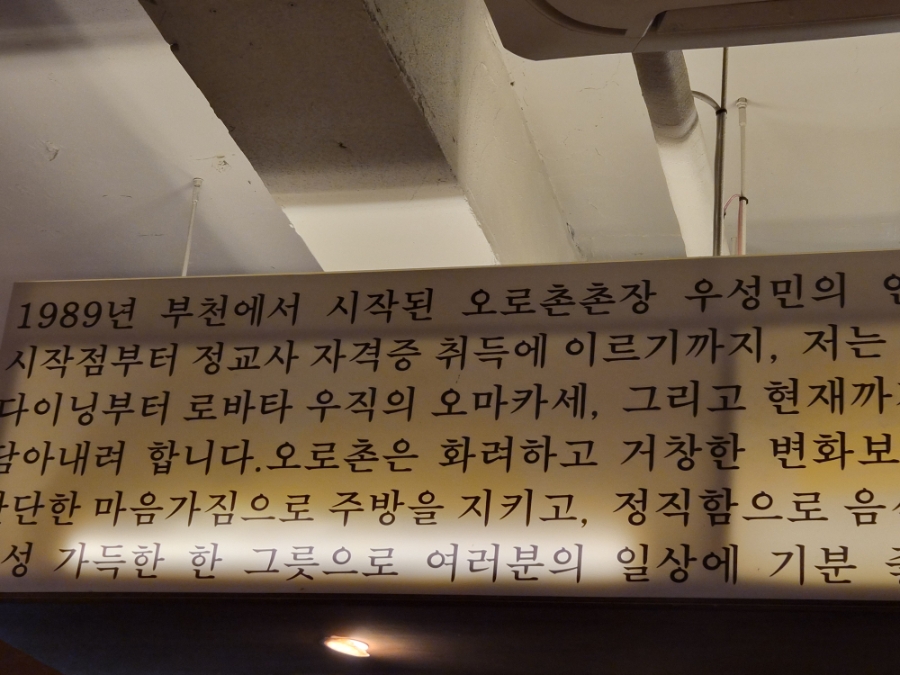 1989년 부천에서 시작된 오로촌촌장 우성민의
시작점부터 정교사 자격증 취득에 이르기까지, 저는
다이닝부터 로바타 우직의 오마카세, 그리고 현재까
담아내려 합니다.오로촌은 화려하고 거창한 변화보
단단한 마음가짐으로 주방을 지키고, 정직함으로 음
성 가득한 한 그릇으로 여러분의 일상에 기분